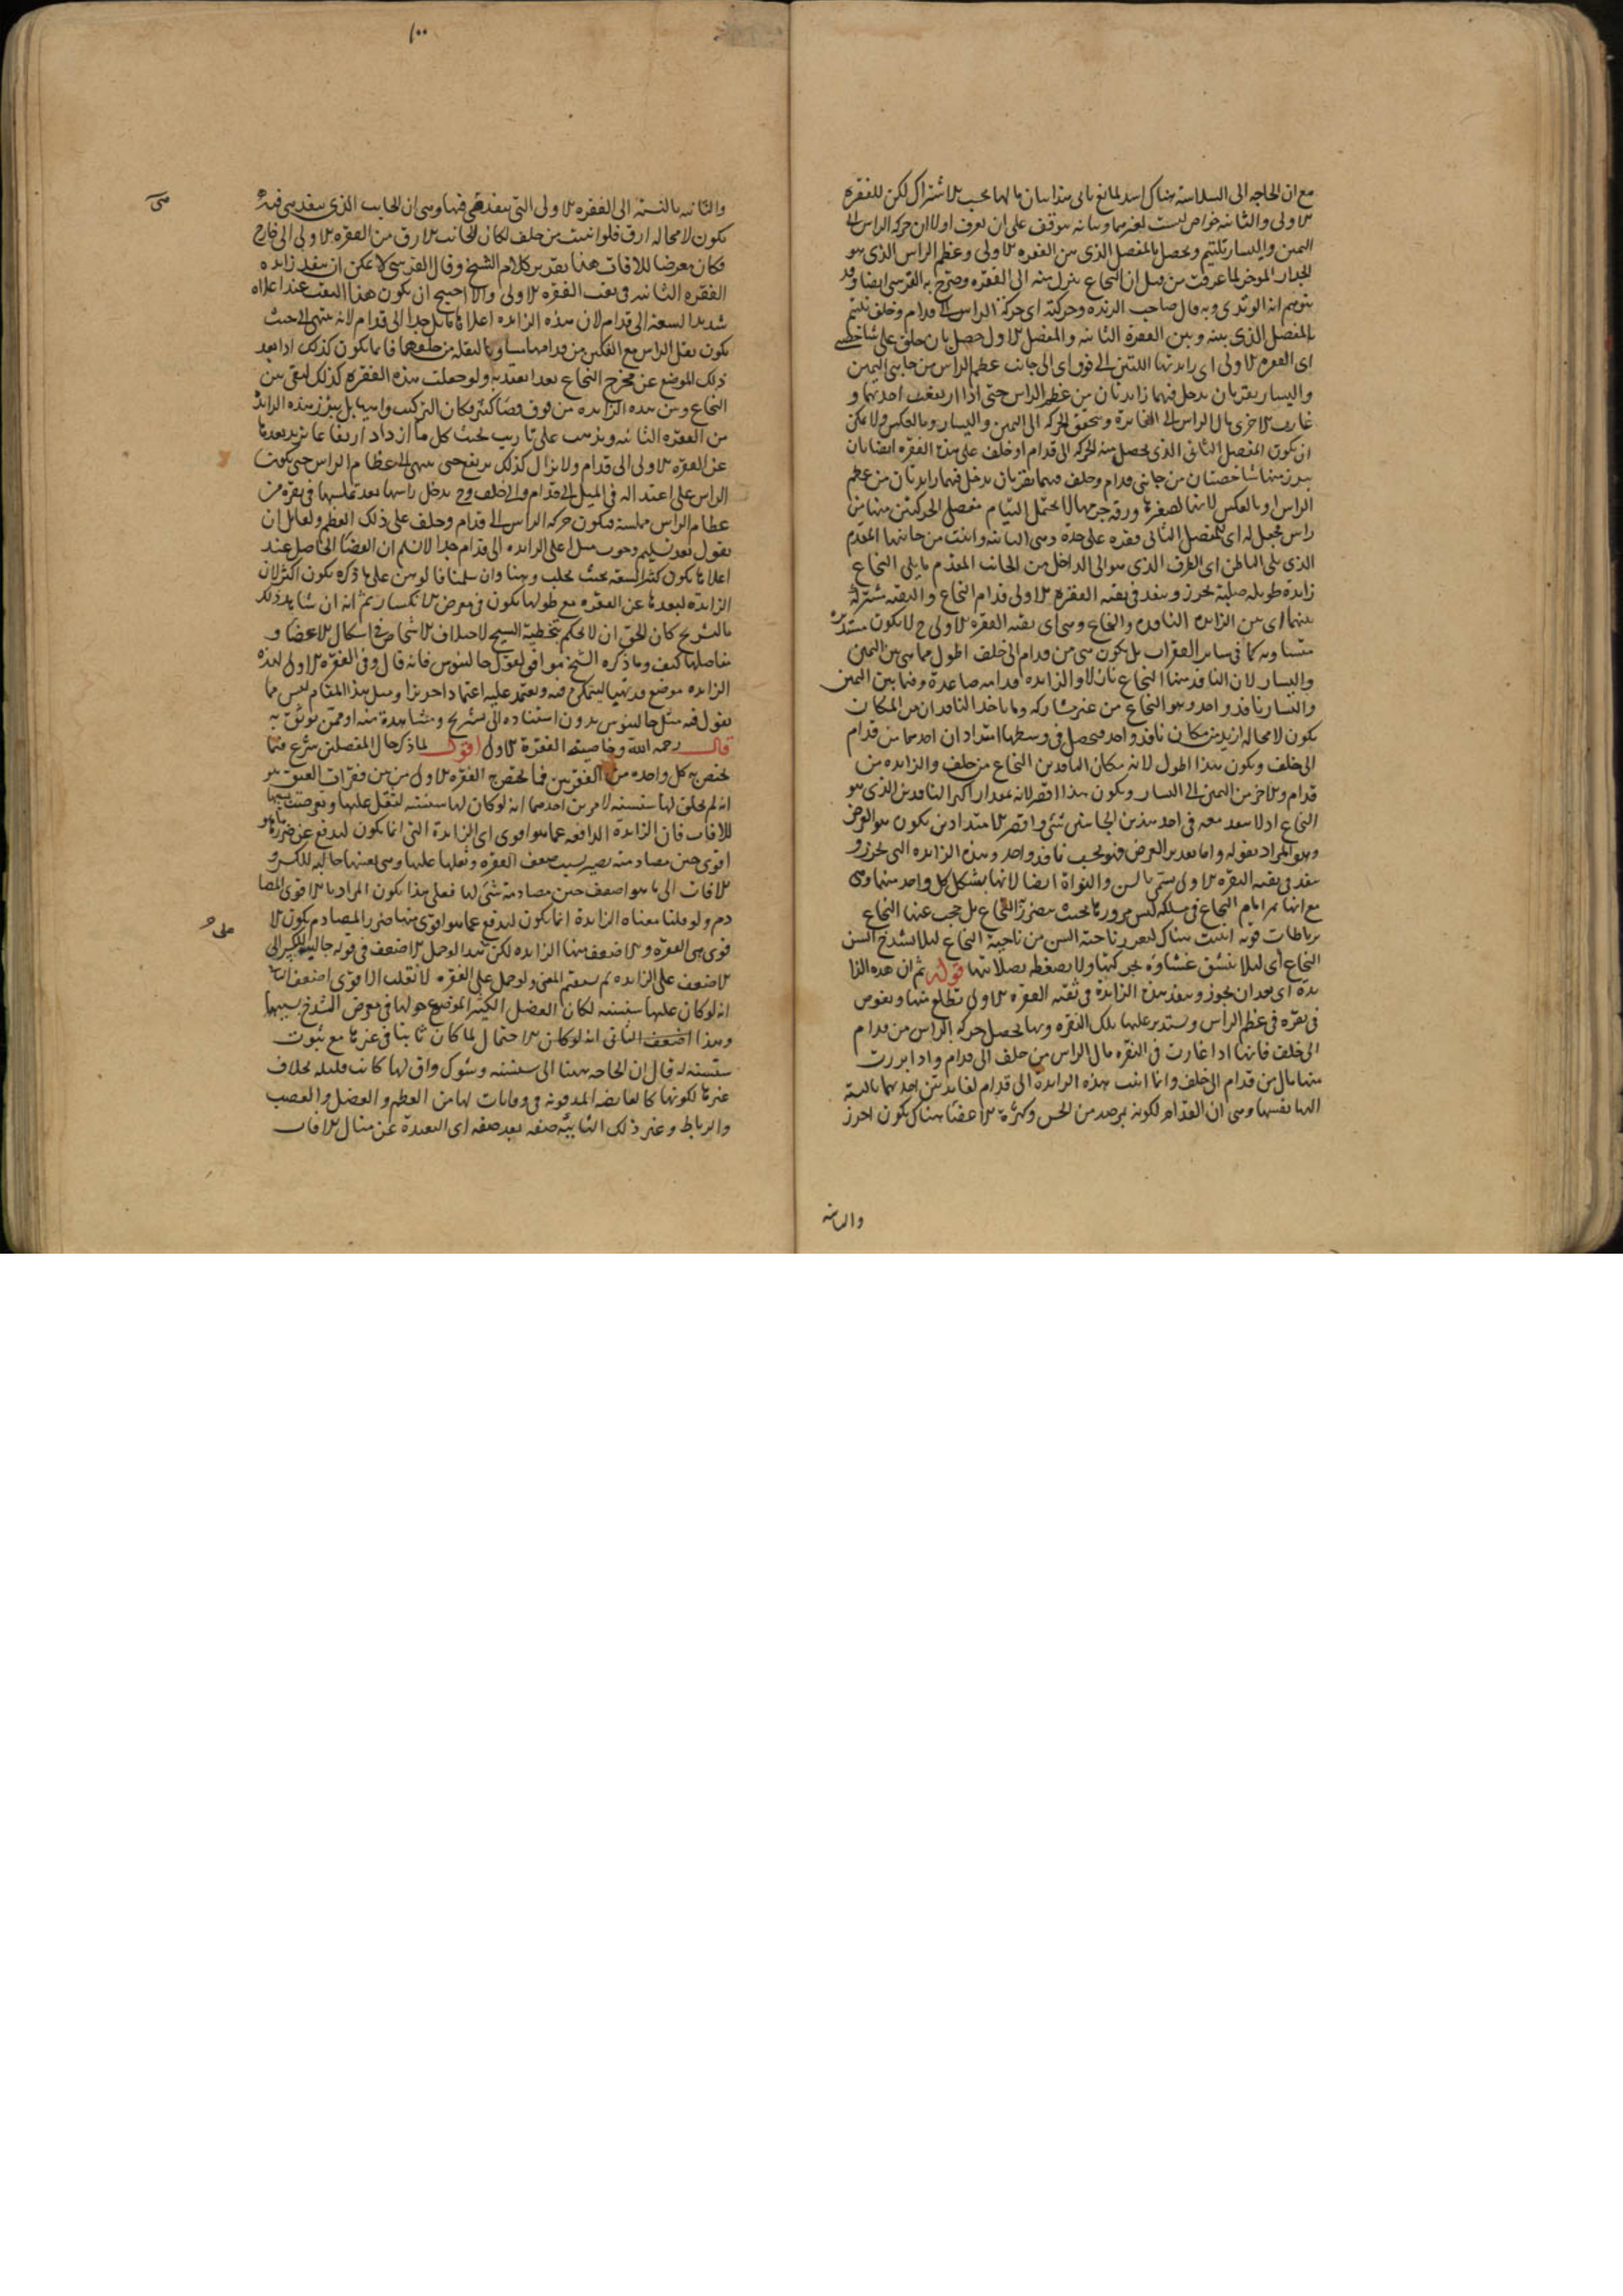 مع ان الحاجة الى السلاسة هناك اشد لما نع ياتى هذا بيان ما لهما بحسب الاشتراك لكن للفقرة
الاولى والثانية خواص ليست لغيرهما وبيانه يتوقف على ان نعرف اولا ان حركة الراس الى
اليمين واليسار تلتئم وتحصل بالمفصل الذى بين الفقرة الاولى وعظم الراس الذى هو
الجدار الموخر لما عرفت من قبل ان النخاع ينزل منه الى الفقرة وصرح به القرشى ايضا وقد
يتوهم انه الوتدى وبه قال صاحب الزبدة وحركته اى حركة الراس الى قدام وخلف تلتئم
بالمفصل الذى بينه وبين الفقرة الثانية والمفصل الاول حصل بان خلق على شاخصتى
اى الفقرة الاولى اى زايدتيها اللتين الى فوق اى الى جانب عظم الراس من جانبى اليمين
واليسار نقرتان يدخل فيهما زايدتان من عظم الراس حتى اذا ارتفعت احديهما و
غارت الاخرى مال الراس الى الغايرة وتتحقق الحركة الى اليمين واليسار وبالعكس ولا يمكن
ان يكون المفصل الثانى الذى يحصل منه الحركة الى قدام او خلف على هذه الفقرة ايضا بان
يبرز منها شاخصتان من جانبى قدام وخلف فيهما نقرتان يدخل فيهما زايدتان من عظم
الراس او بالعكس لانها لصغرها ورقة جرمها لا يحتمل التيام مفصل الحركتين منها من
راس فجعل له اى للمفصل الثانى فقرة على حدة وهى الثانية وانبتت من جانبها المقدم
الذى يلى الباطن اى الطرف الذى هو الى الداخل من الجانب المقدم ما يلى النخاع
زايدة طويلة صلبة تجوز وينفد فى ثقبة الفقرة الاولى قدام النخاع والثقبة مشتركة
بينهما اى بين الزايدة النافدة والنخاع وهى اى ثقبة الفقرة الاولى ح لا يكون مستديرة
متساوية كما فى ساير الفقرات بل يكون هى من قدام الى خلف اطول مما هى بين اليمين
واليسار لان النافد منها النخاع نازلا والزايدة قدامه صاعدة وفيما بين اليمين
واليسار نافد واحد وهو النخاع من غير مشاركة وما ياخذ النافدان من المكان
يكون لا محالة ازيد من مكان نافد واحد فيحصل فى وسطها امتدادان احدهما من قدام
الى خلف ويكون هذا اطول لانه مكان النافدين النخاع من خلف والزايدة من
قدام والاخر من اليمين الى اليسار ويكون هذا اقصر لانه بمقدار اكبر النافدين الذى هو
النخاع اذ لا ينفد معه فى احد هذين الجانبين شئ واقصر الامتدادين يكون هو العرض
وهو المراد بقوله واما تقدير العرض فهو بحسب نافد واحد وهذه الزايدة التى تجوز و
ينفد فى ثقبة الفقرة الاولى يسمى بالسن والنواة ايضا لانها بشكل كل واحد منهما وهى
مع انها تمر امام النخاع فى مسلكه ليس مرورها بحيث يضر النخاع بل حجب عنها النخاع
برباطات قوية انبتت هناك لتفرز ناحية السن من ناحية النخاع ليلا يشدخ السن
النخاع اى ليلا ينشق غشاؤه بحركتها ولا يضغطه بصلابتها قوله ثم ان هذه الزا
يدة اى بعد ان تجوز وينفد هذه الزايدة فى ثقبة الفقرة الاولى تطلع منها ويغوص
فى نقرة فى عظم الراس ويستدير عليها تلك النقرة وبها يحصل حركة الراس من قدام
الى خلف فانها اذا غارت فى النقرة مال الراس من خلف الى قدام واذا برزت
منها مال من قدام الى خلف وانما انبتت بهذه الزايدة الى قدام لفايدتين احديهما بالنسبة
اليها نفسها وهى ان القدام لكونه بمرصد من الحس وكثرة الاعضا هناك يكون احرز
والثانية
١٠٠
والثانية بالنسبة الى الفقرة الاولى التى ينفد هى فيها وهى ان الجانب الذى ينفد هى فيه
يكون لا محالة ارق فلو انبتت من خلف لكان الجانب الارق من الفقرة الاولى الى خارج
فكان معرضا للافات هذا تقدير كلام الشيخ وقال القرشى لا يمكن ان ينفد زايدة
الفقرة الثانية فى ثقب الفقرة الاولى والا احتيج ان يكون هذا الثقب عند اعلاه
شديد السعة الى قدام لان هذه الزايدة اعلاها مايل جدا الى قدام لانه ينتهى الى حيث
يكون ثقل الراس مع الفكين من قدامها مساويا لثقله من خلفهما فانما يكون كذلك اذا بعد
ذلك الموضع عن مخرج النخاع بعدا يعتد به ولو جعلت هذه الفقرة كذلك لبقى بين
النخاع وبين هذه الزايدة من فوق فضا كثير فكان التركيب واهيا بل يبرز هذه الزايدة
من الفقرة الثانية ويذهب على تاريب بحيث كل ما ازداد ارتفاعا يزيد بعدها
عن الفقرة الاولى الى قدام ولا يزال كذلك يرتفع حتى ينتهى الى عظام الراس حتى يكون
الراس على اعتداله فى الميل الى قدام والى خلف وح يدخل راسها بعد تملسها فى نقرة من
عظام الراس مملسة فيكون حركة الراس الى قدام وخلف على ذلك العظم ولقايل ان
يقول بعد تسليم وجوب ميل اعلى الزايدة الى قدام جدا لا نسلم ان الفضا الحاصل عند
اعلاها يكون كثير السعة بحيث يجلب وهنا وان سلمنا فالوهن على ما ذكره يكون اكثر لان
الزايدة لبعدها عن الفقرة مع طولها يكون فى معرض الانكسار ثم انه ان شاهد ذلك
بالتشريح كان الحق ان لا يحكم بتخطية الشيخ لاختلاف الاشخاص فى اشكال الاعضا و
مفاصلها كيف وما ذكره الشيخ موافق لقول جالينوس فانه قال وفى الفقرة الاولى لهذه
الزايدة موضع قد تهيا ليتمكن فيه ويعتمد عليه اعتمادا حريزا ومثل هذا المقام ليس مما
يقول فيه مثل جالينوس بدون استناده الى تشريح ومشاهدة منه او ممن يوثق به
قال رحمه الله وخاصية الفقرة الاولى اقول لما ذكر حال المفصلين شرع فيما
يختص به كل واحدة من الفقرتين فما يختص به الفقرة الاولى من بين فقرات العنق هو
انه لم يخلق لها سنسنة لامرين احدهما انه لو كان لها سنسنة لثقل عليها وتعرضت بسببها
للافات فان الزايدة الدافعة عما هو اقوى اى الزايدة التى انما يكون ليدفع عن ضررها هو
اقوى حين مصادمته يصير بسبب ضعف الفقرة وثقلها عليها وهى بعينها جالبة للكسر و
الافات الى ما هو اضعف حين مصادمة شئ لها فعلى هذا يكون المراد بالاقوى المصا
دم ولو قلنا معناه الزايدة انما يكون ليدفع عما هو اقوى منها ضرر المصادم يكون الا
قوى هى الفقرة والاضعف منها الزايدة لكن هذا لو حمل الاضعف فى قوله جالبة للكسر الى
الاضعف على الزايدة لم يستقم المعنى ولو حمل على الفقرة لانقلب الاقوى اضعف
انه لو كان عليها سنسنة لكان العضل الكثير الموضوع حولها فى معرض الشدخ بسببها
وهذا اضعف الثانى انه لو كان الاحتمال لما كان ثابتا فى غيرها مع ثبوت
سنسنة له قال ان الحاجة ههنا الى سنسنة وشوك واق لها كانت قليلة بخلاف
غيرها لكونها كالغايصة المدفونة فى وقايات لها من العظم والعضل والعصب
والرباط وغير ذلك النائية صفة بعد صفة اى البعيدة عن منال الافات